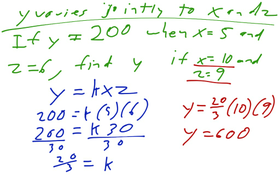 y varies jointly to x and z
If y = 200 when x = 5 and
z = 6, find y if x = 10 and
z = 9
y = kxz
200 = k(5)(6)
200/30 = k30/30
20/3 = k
y = 20/3 (10)(9)
y = 600